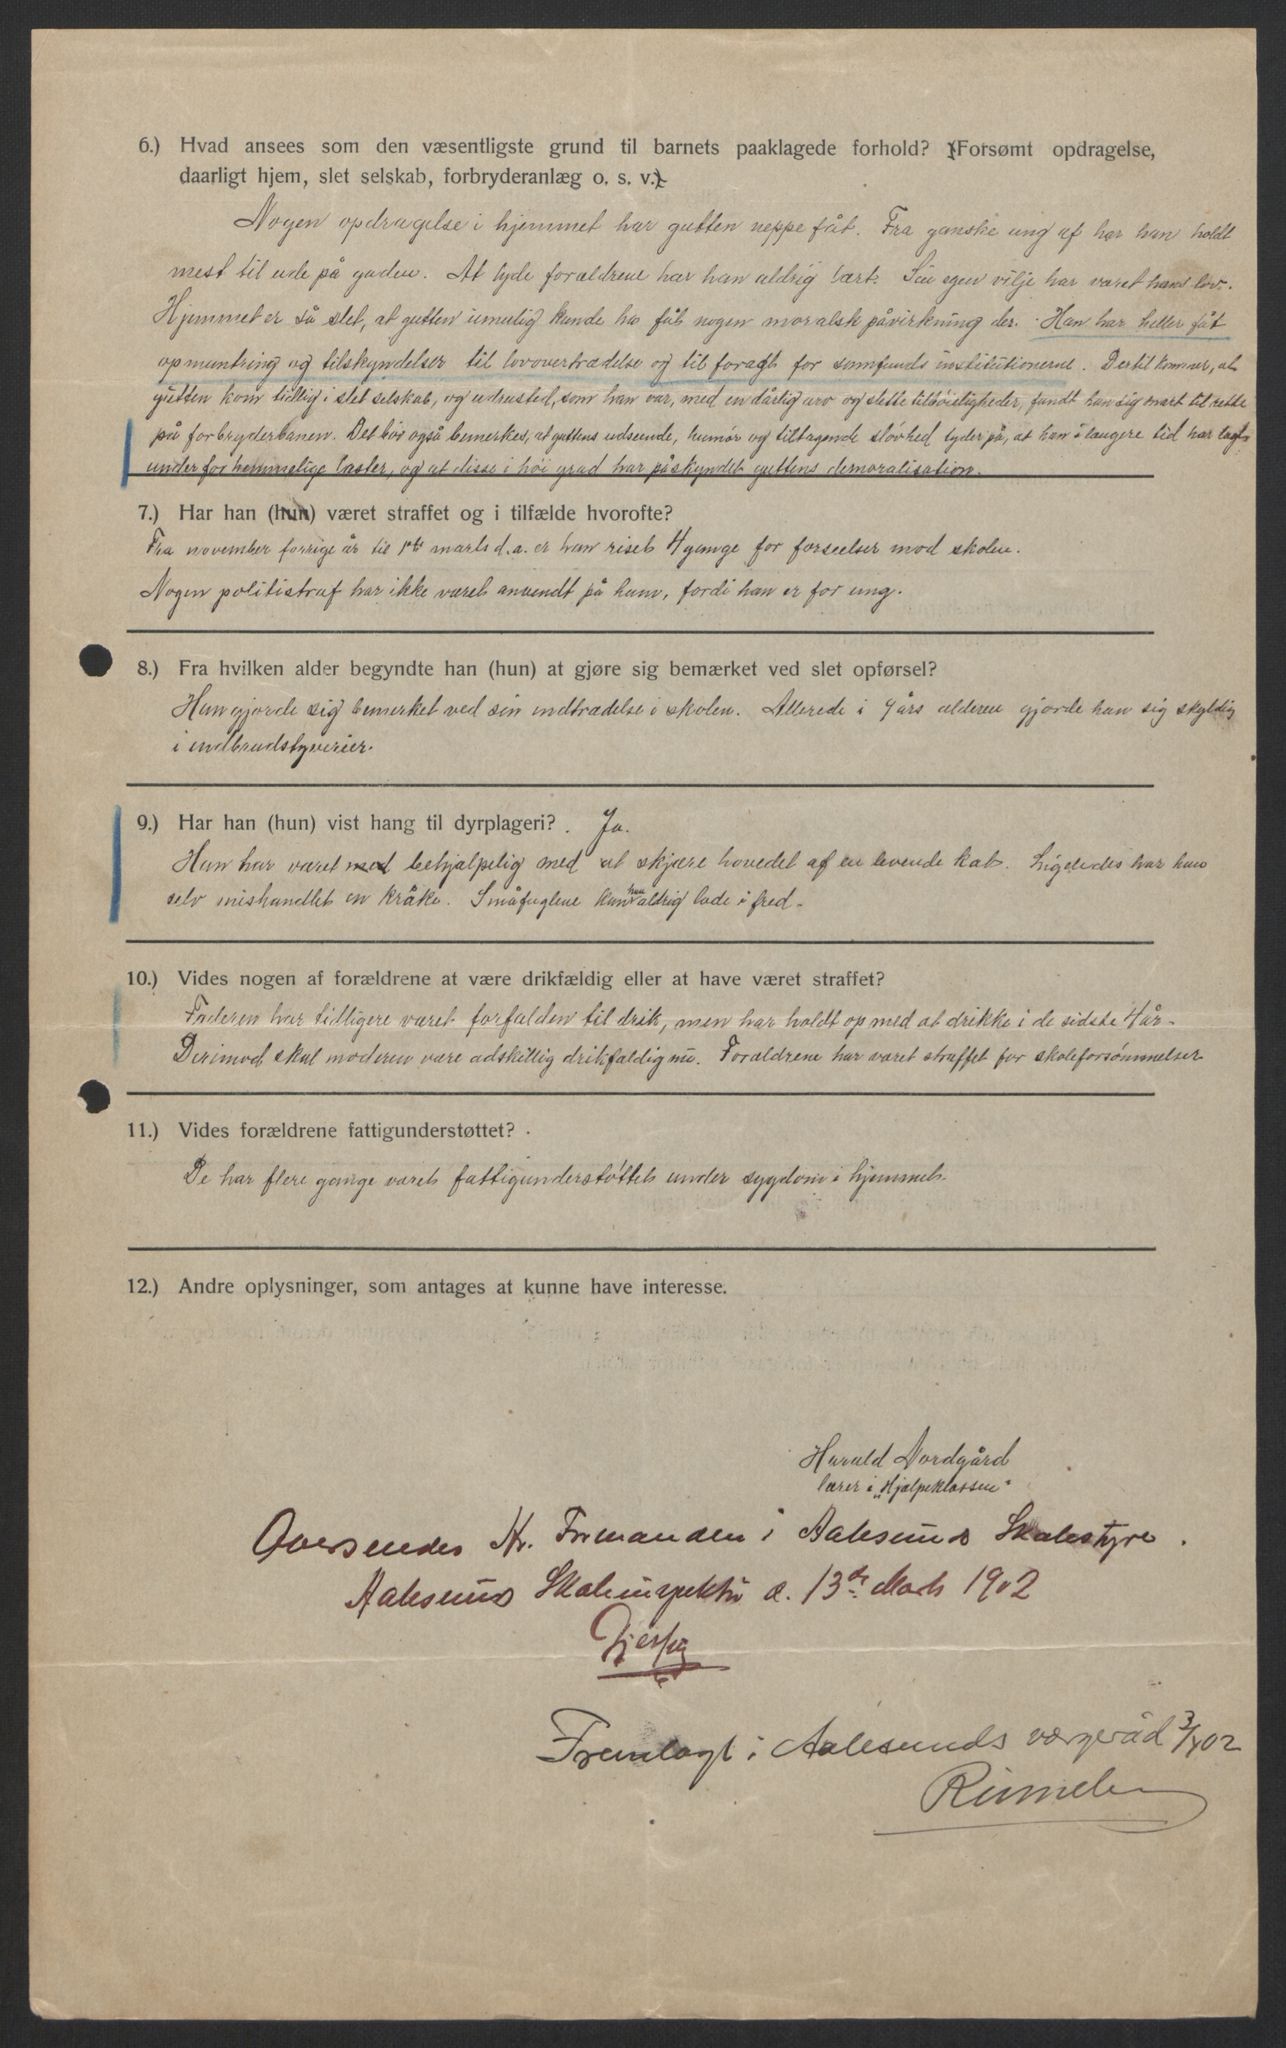 6.) Hvad ansees som den væsentligste grund til barnets paaklagede forhold? (Forsømt opdragelse,
daarligt hjem, slet selskab, forbryderanlæg o. s. v.).
Nogen opdragelse i hjemmet har gutten neppe fåt. Fra ganske ung af har han holdt
mest til ude på gaden. At lyde forældrene har han aldrig lært. Sin egen vilje har været hans lov.
Hjemmet er så slet, at gutten umulig kunde ha fåt nogen moralsk påvirkning der. Han har heller fåt
opmuntring og tilskyndelser til lovovertrædelse og til foragt for samfunds institutionerne. Dertil kommer, at
gutten kom tidlig i slet selskab, og udrusted, som han var, med en dårlig arv og slette tilbøieligheder, fandt han sig snart til rette
på forbryderbanen. Det bør også bemerkes, at guttens udseende, humør og tiltagende sløvhed tyder på, at han i længere tid har lagt
under for hemmelige laster, og at disse i høi grad har påskyndet guttens demoralisation.
7.) Har han (hun) været straffet og i tilfælde hvorofte?
Fra november forrige år til 1ste marts d.a. er han riset 4 gange for forseelser mod skolen.
Nogen politistraf har ikke været anvendt på ham, fordi han er for ung.
8.) Fra hvilken alder begyndte han (hun) at gjøre sig bemærket ved slet opførsel?
Han gjorde sig bemerket ved sin indtrædelse i skolen. Allerede i 9 års alderen gjorde han sig skyldig
i indbrudstyverier.
9.) Har han (hun) vist hang til dyrplageri? Ja.
Han har været med behjælpelig med at skjære hovedet af en levende kat. Ligeledes har han
selv mishandlet en kråke. Småfuglene kan han aldrig lade i fred.
10.) Vides nogen af forældrene at være drikfældig eller at have været straffet?
Faderen har tidligere været forfalden til drik, men har holdt op med at drikke i de sidste 4 år.
Derimod skal moderen være adskillig drikfældig nu. Forældrene har været straffet for skoleforsømmelser
11.) Vides forældrene fattigunderstøttet?
De har flere gange været fattigunderstøttet under sygdom i hjemmet.
12.) Andre oplysninger, som antages at kunne have interesse.
Harald Nordgård
lærer i "Hjælpeklassen"
Oversendes Hr. Formanden i Aalesunds Skolestyre.
Aalesunds Skoleinspektør d. 13de Marts 1902
Fremlagt i Aalesunds værgeråd 3/ 02